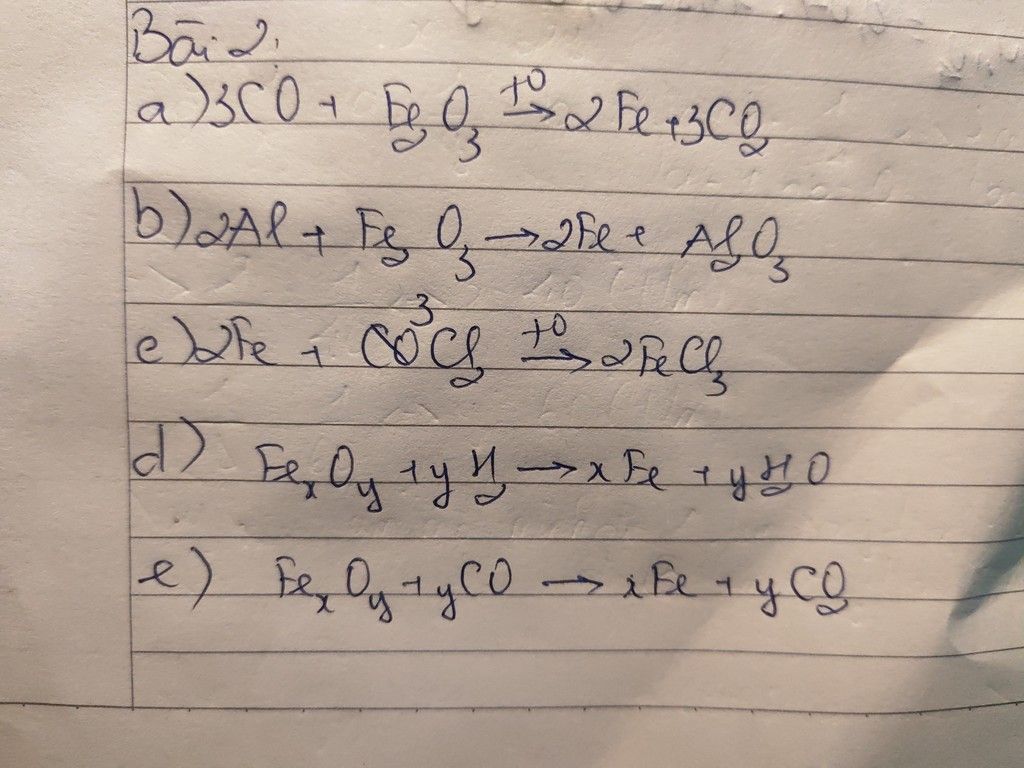 Bài 2:
a) 3CO + Fe₂O₃ →(t⁰) 2Fe + 3CO₂
b) 2Al + Fe₂O₃ → 2Fe + Al₂O₃
c) 2Fe + CO³Cl₂ →(t⁰) 2FeCl₃
d) FeₓOy + yH₂ → xFe + yH₂O
e) FeₓOy + yCO → xFe + yCO₂